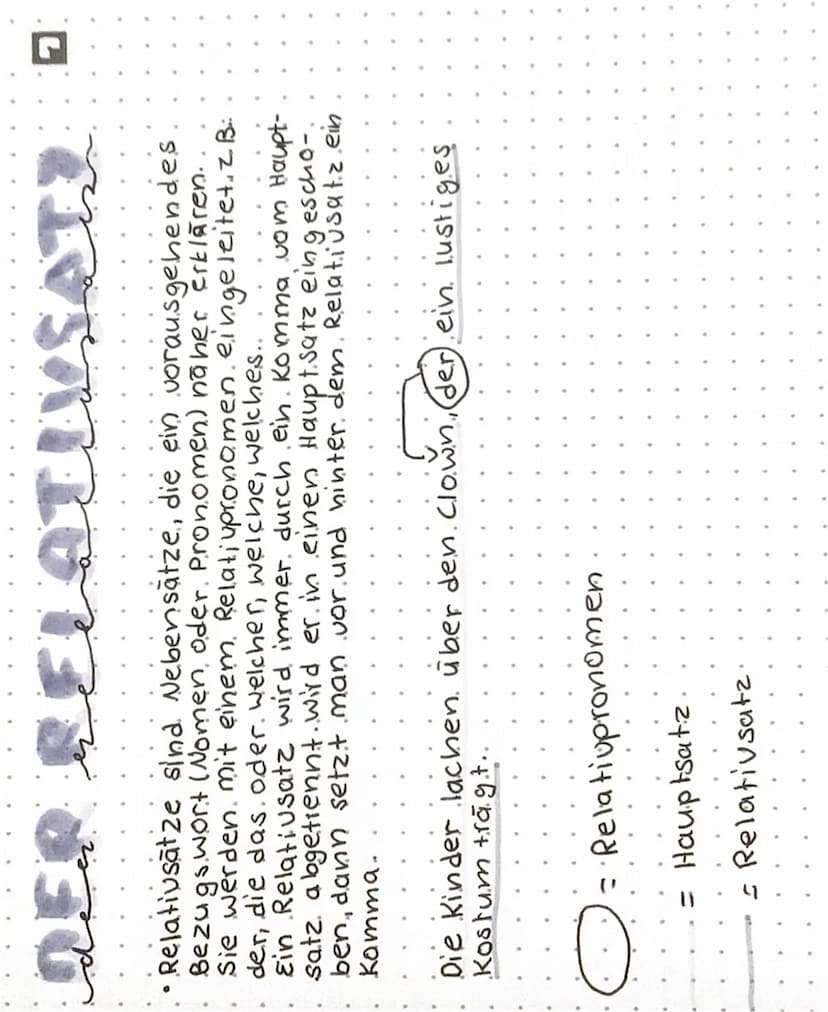 DER RELATIVSATZ
der relativsatz
• Relativsätze sind Nebensätze, die ein vorausgehendes
Bezugswort (Nomen oder Pronomen) näher erklären.
Sie werden mit einem Relativpronomen eingeleitet, z.B.
der, die das oder welcher, welche, welches.
Ein Relativsatz wird immer durch ein Komma vom Haupt-
satz abgetrennt. Wird er in einen Hauptsatz eingescho-
ben, dann setzt man vor und hinter dem Relativsatz ein
Komma.
Die Kinder lachen über den Clown, der ein lustiges
Kostüm trägt.
= Relativpronomen
= Hauptsatz
= Relativsatz